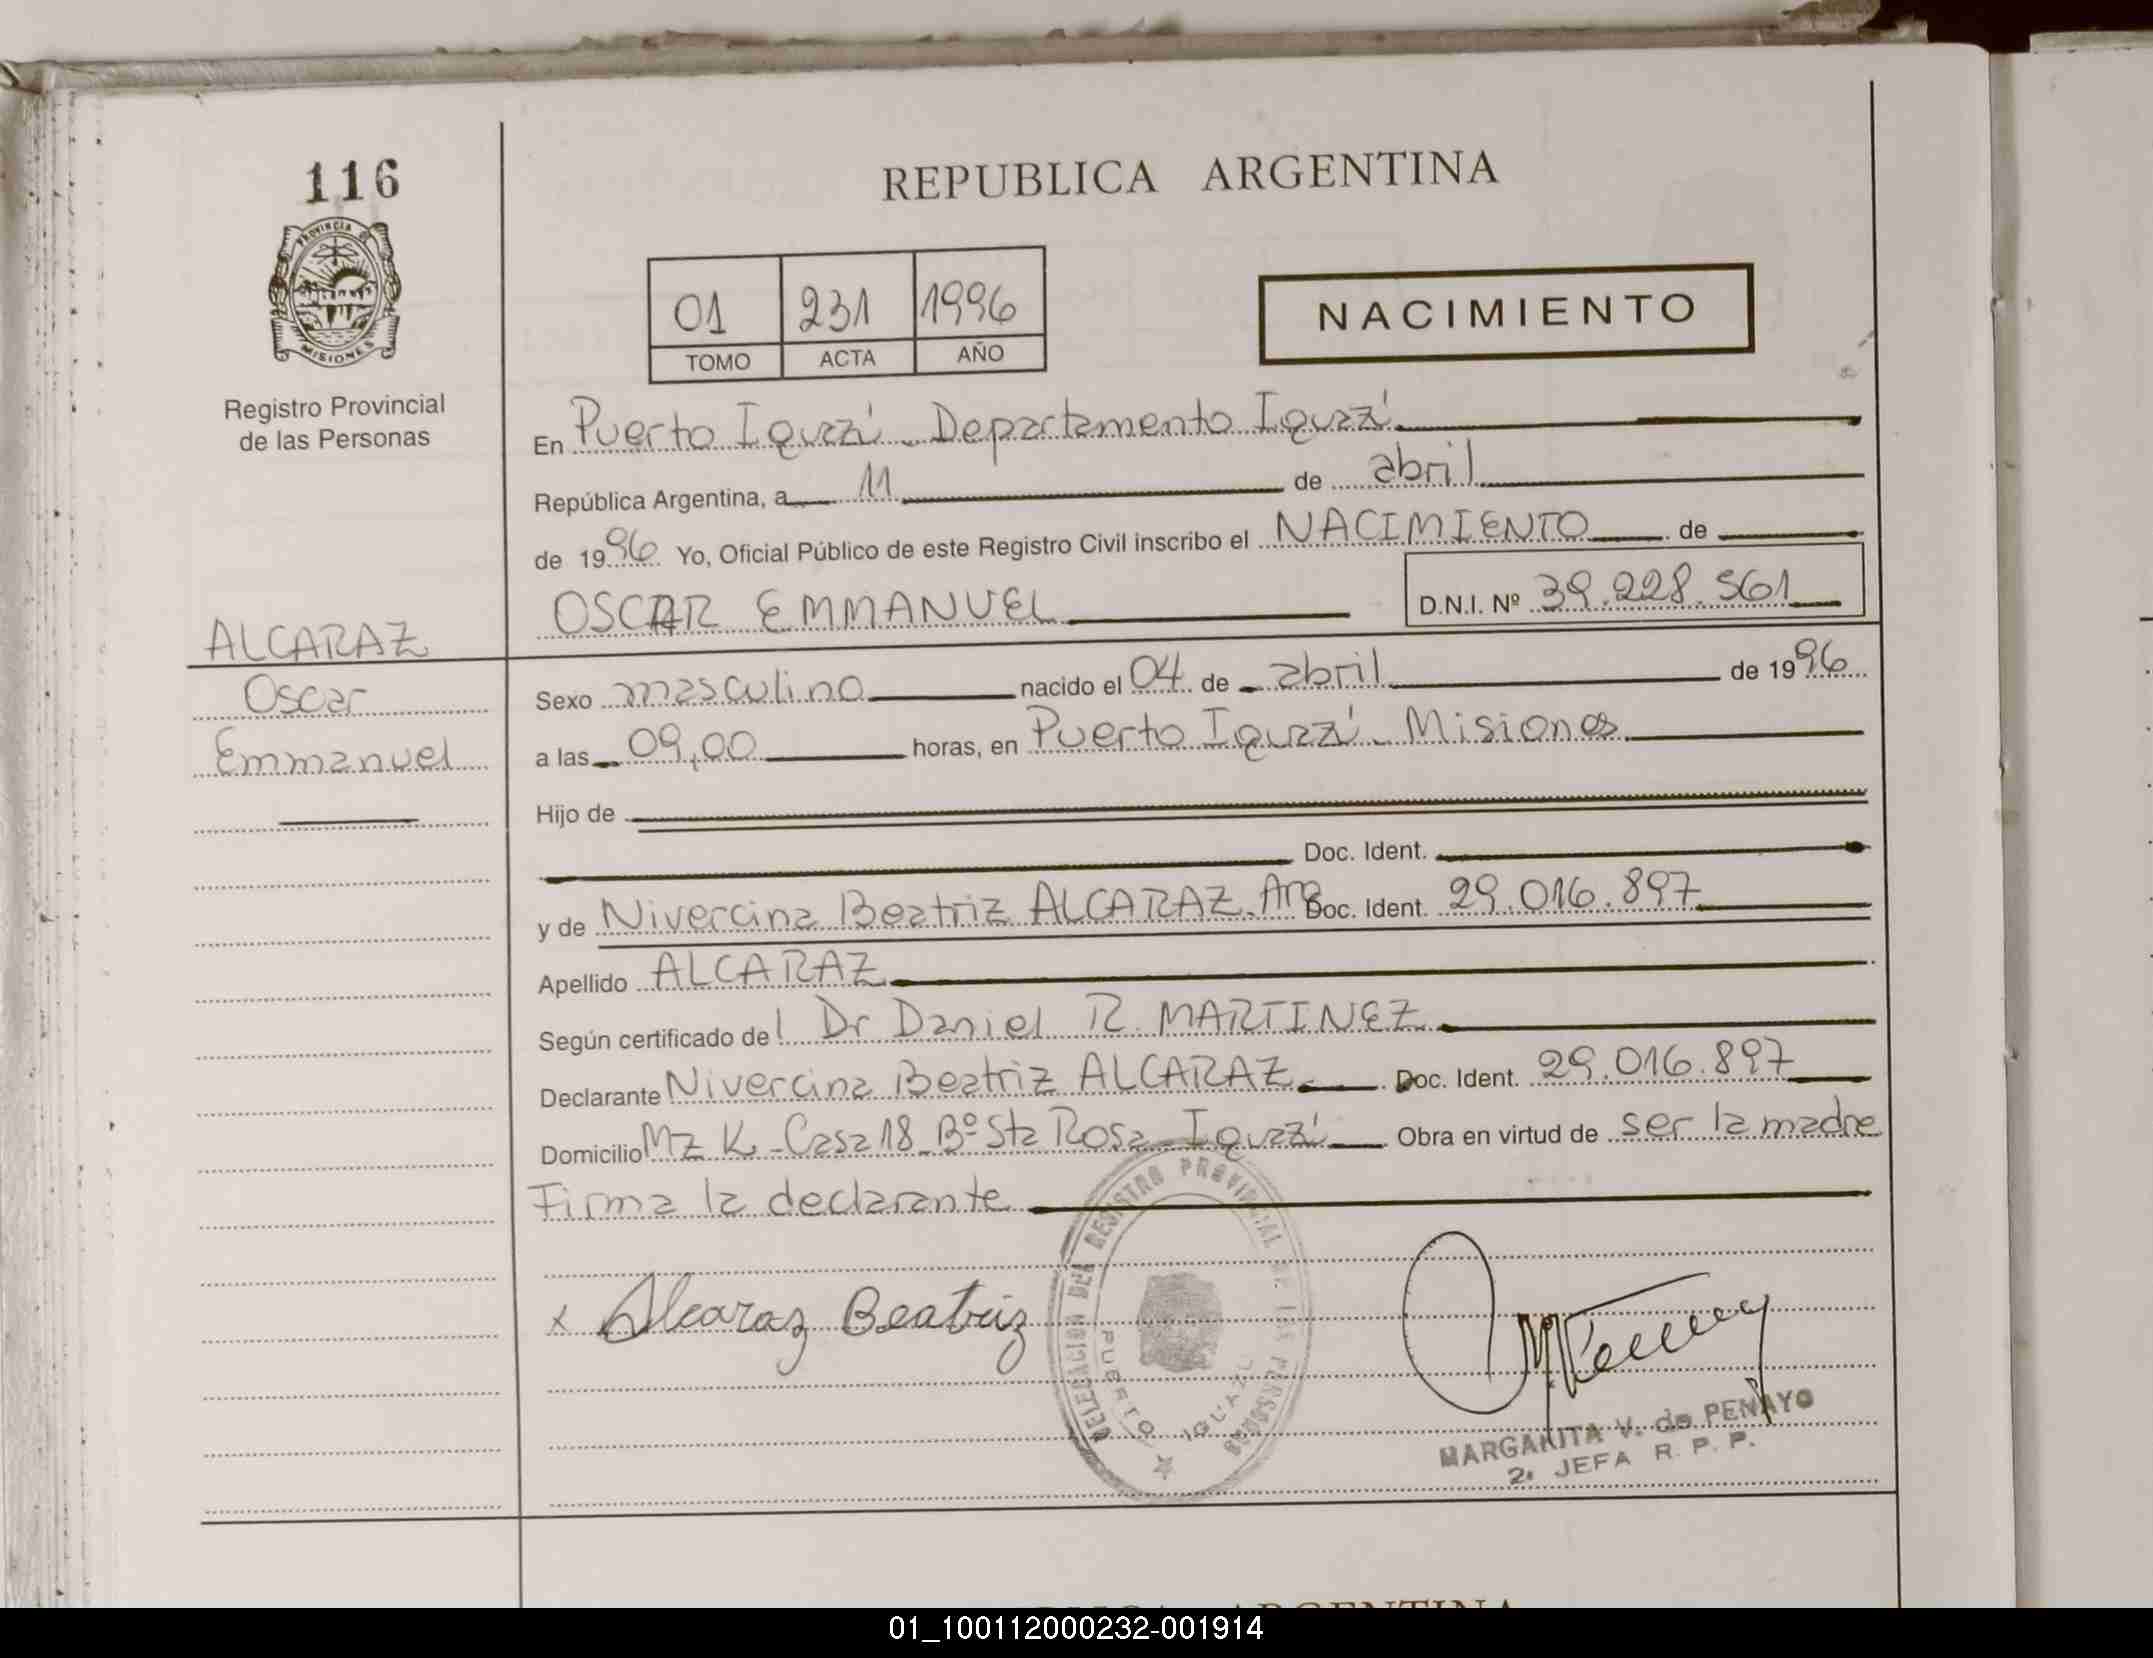 116
PROVINCIA DE
MISIONES
Registro Provincial
de las Personas
REPUBLICA ARGENTINA
01 231 1996
TOMO ACTA AÑO
NACIMIENTO
En Puerto Iguazú - Departamento Iguazú
República Argentina, a 11 de abril
de 1996 Yo, Oficial Público de este Registro Civil inscribo el NACIMIENTO de
OSCAR EMMANUEL D.N.I. Nº 39.228.561
ALCARAZ
Oscar
Emmanuel
Sexo masculino nacido el 04 de abril de 1996
a las 09,00 horas, en Puerto Iguazú - Misiones
Hijo de
Doc. Ident.
y de Nivercina Beatriz ALCARAZ. Arg Doc. Ident. 29.016.897
Apellido ALCARAZ
Según certificado del Dr Daniel R. MARTINEZ
Declarante Nivercina Beatriz ALCARAZ Doc. Ident. 29.016.897
Domicilio Mz K - Casa 18 - Bº Sta Rosa - Iguazú Obra en virtud de ser la madre
Firma la declarante
x Alcaraz Beatriz
DELEGACION DEL REGISTRO PROVINCIAL DE LAS PERSONAS
PUERTO IGUAZU
MARGARITA V. de PENAYO
2ª JEFA R. P. P.
REPUBLICA ARGENTINA
01_100112000232-001914